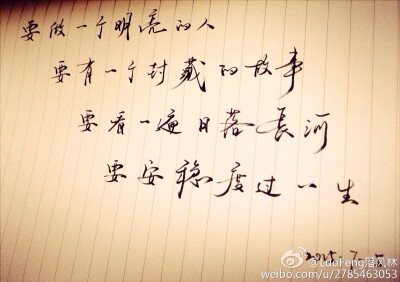 要做一个明亮的人
要有一个封藏的故事
要看一遍日落长河
要安稳度过一生
2015.7.
@LuoFeng潜风林
weibo.com/u/2785463053